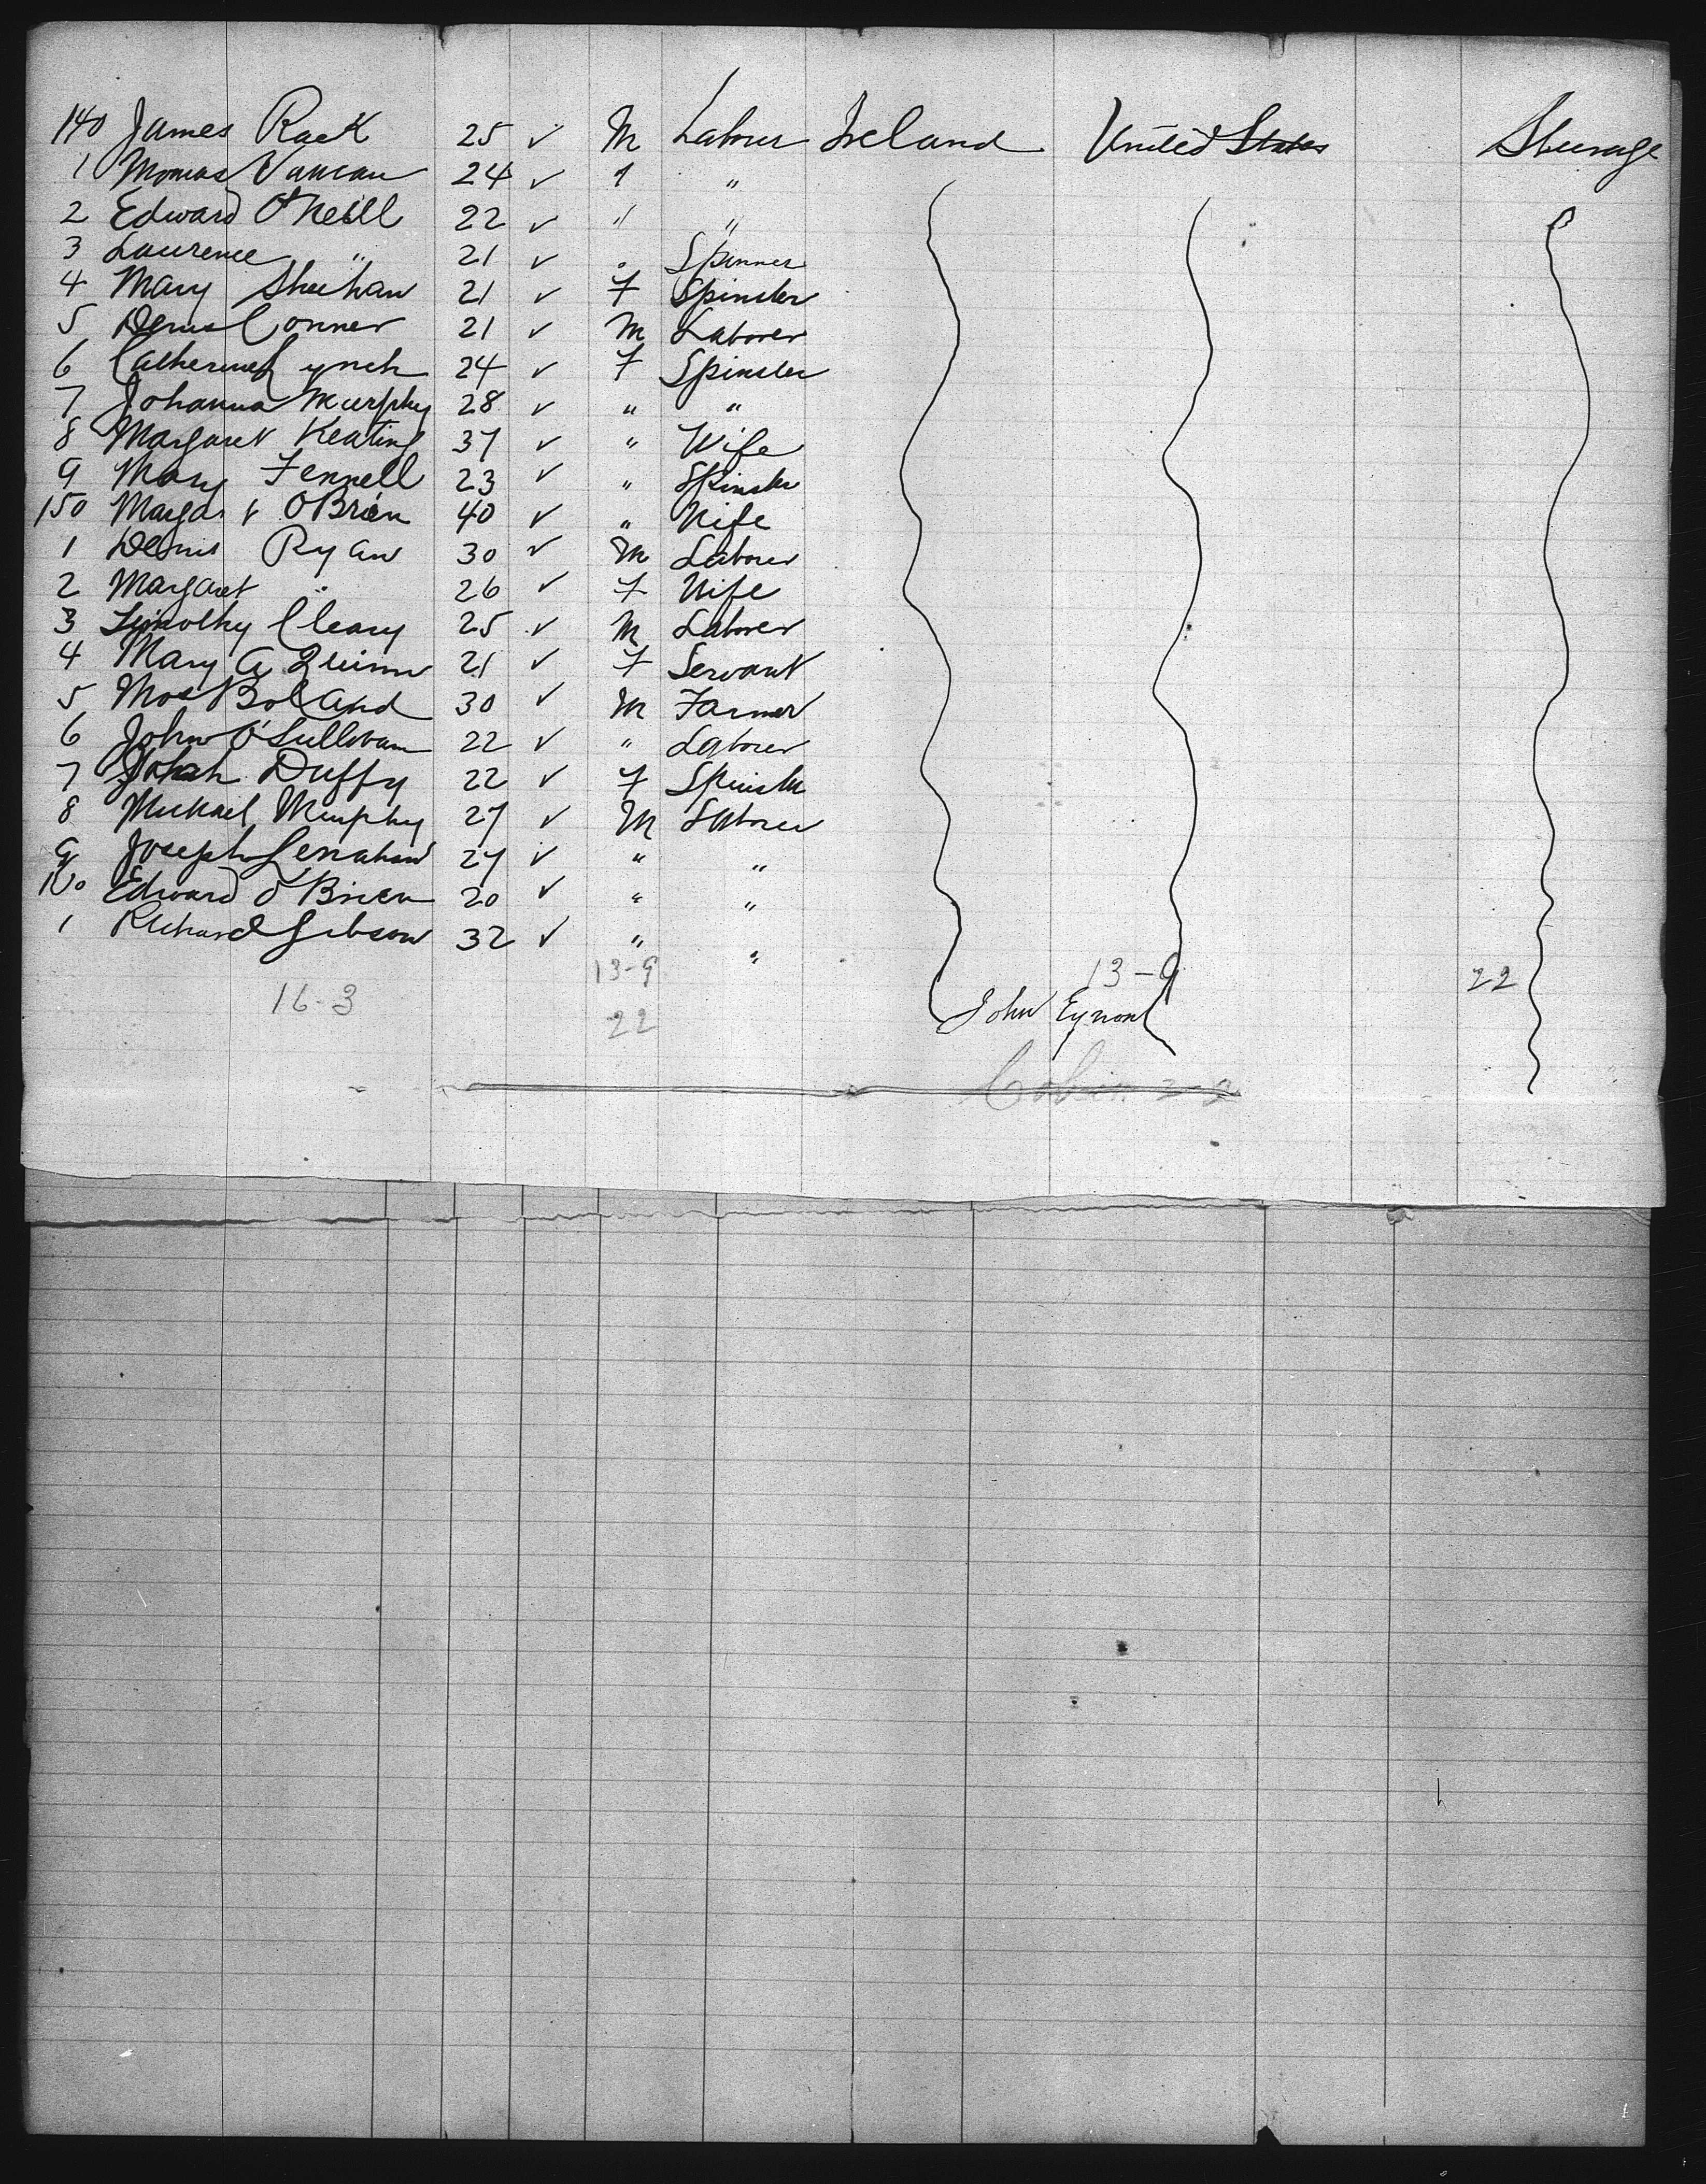 140 James Rack 25 ✓ M Labour Ireland United States Steerage
1 Thomas 24 ✓ " "
2 Edward O'Neill 22 ✓ " "
3 Laurence " 21 ✓ " Spinner
4 Mary Sheehan 21 ✓ F Spinster
5 Denis Conner 21 ✓ M Laborer
6 Catherine Lynch 24 ✓ F Spinster
7 Johanna Murphy 28 ✓ " "
8 Margaret Keating 37 ✓ " Wife
9 Mary Fennell 23 ✓ " Spinster
150 Margaret O'Brien 40 ✓ " Wife
1 Denis Ryan 30 ✓ M Laborer
2 Margaret " 26 ✓ F Wife
3 Timothy Cleary 25 ✓ M Laborer
4 Mary A Quinn 21 ✓ F Servant
5 Thos Boland 30 ✓ M Farmer
6 John O'Sullivan 22 ✓ " Laborer
7 Duffy 22 ✓ F Spinster
8 Michael Murphy 27 ✓ M Laborer
9 Joseph Lenahan 27 ✓ " "
160 Edward O'Brien 20 ✓ " "
1 Richard Gibson 32 ✓ " "
13-9 13-9 22
16-3 John Eynon
22
Cabin 2-2